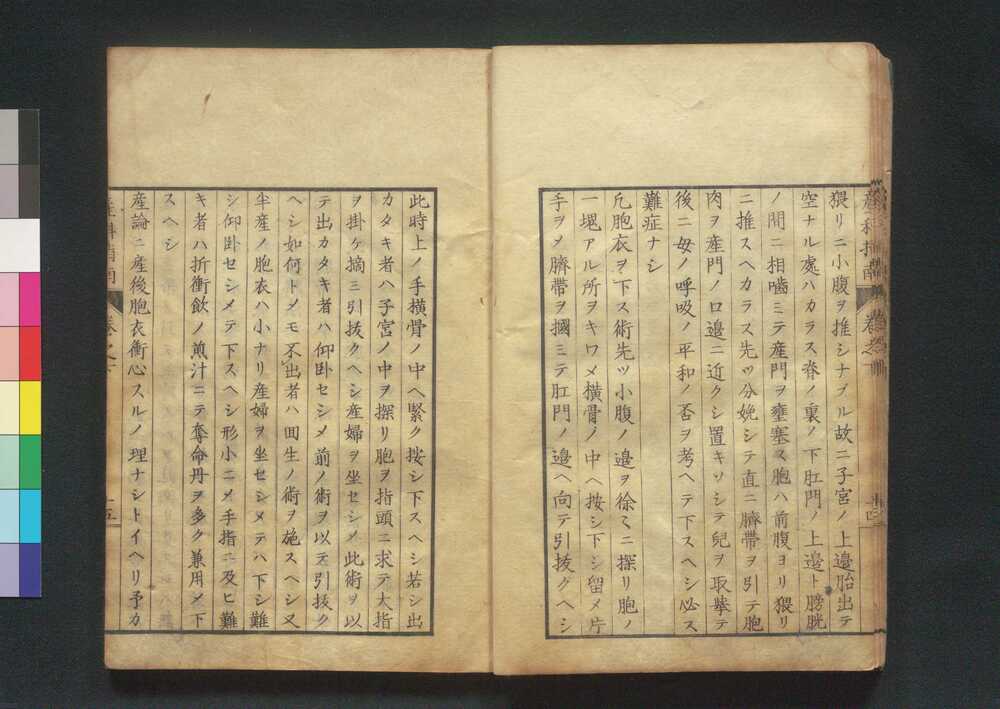 猥リニ小腹ヲ推シナブル故ニ子宮ノ上邊胎出テ
空ナル處ハカラス脊ノ裏ノ下肛門ノ上邊ト膀胱
ノ間ニ相嚙ミテ産門ヲ壅塞ス胞ハ前腹ヨリ猥リ
ニ推スヘカラス先ツ分娩シテ直ニ臍帶ヲ引テ胞
肉ヲ産門ノ口邊ニ近クシ置キソシテ兒ヲ取擧テ
後ニ母ノ呼吸ノ平和ノ否ヲ考ヘテ下スヘシ必ス
難症ナシ
凢胞衣ヲ下ス術先ツ小腹ノ邊ヲ徐々ニ探リ胞ノ
一塊アル所ヲキワメ橫骨ノ中ヘ按シ下シ留メ片
手ヲメ臍帶ヲ摑ミテ肛門ノ邊ヘ向テ引拔グヘシ
此時上ノ手橫骨ノ中ヘ緊ク按シ下スヘシ若シ出
カタキ者ハ子宮ノ中ヲ探リ胞ヲ指頭ニ求テ大指
ヲ掛ケ摘ミ引拔クヘシ産婦ヲ坐セシメ此術ヲ以
テ出カタキ者ハ仰卧セシメ前ノ術ヲ以テ引拔ク
ヘシ如何トメモ不出者ハ回生ノ術ヲ施スヘシ又
半産ノ胞衣ハ小ナリ産婦ヲ坐セシメテハ下シ難
シ仰卧セシメテ下スヘシ形小ニメ手指ニ及ヒ難
キ者ハ折衝飮ノ煎汁ニテ奪命丹ヲ多ク兼用メ下
スヘシ
産論ニ産後胞衣衝心スルノ理ナシトイヘリ予カ